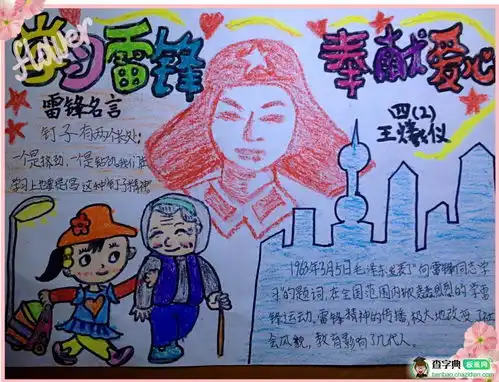 flower
学习雷锋
奉献爱心
雷锋名言
钉子有两个长处:
一个是挤劲,一个是钻劲,我们在
学习上也要提倡这种"钉子精神"
四(2)
王 仪
1963年3月5日毛泽东发表了"向雷锋同志学
习"的题词,在全国范围内掀起轰轰烈烈的学雷
锋运动。雷锋精神的传播,极大地改变了社
会风貌,教育影响了几代人。
查字典
板报网
banbao.chazidian.com